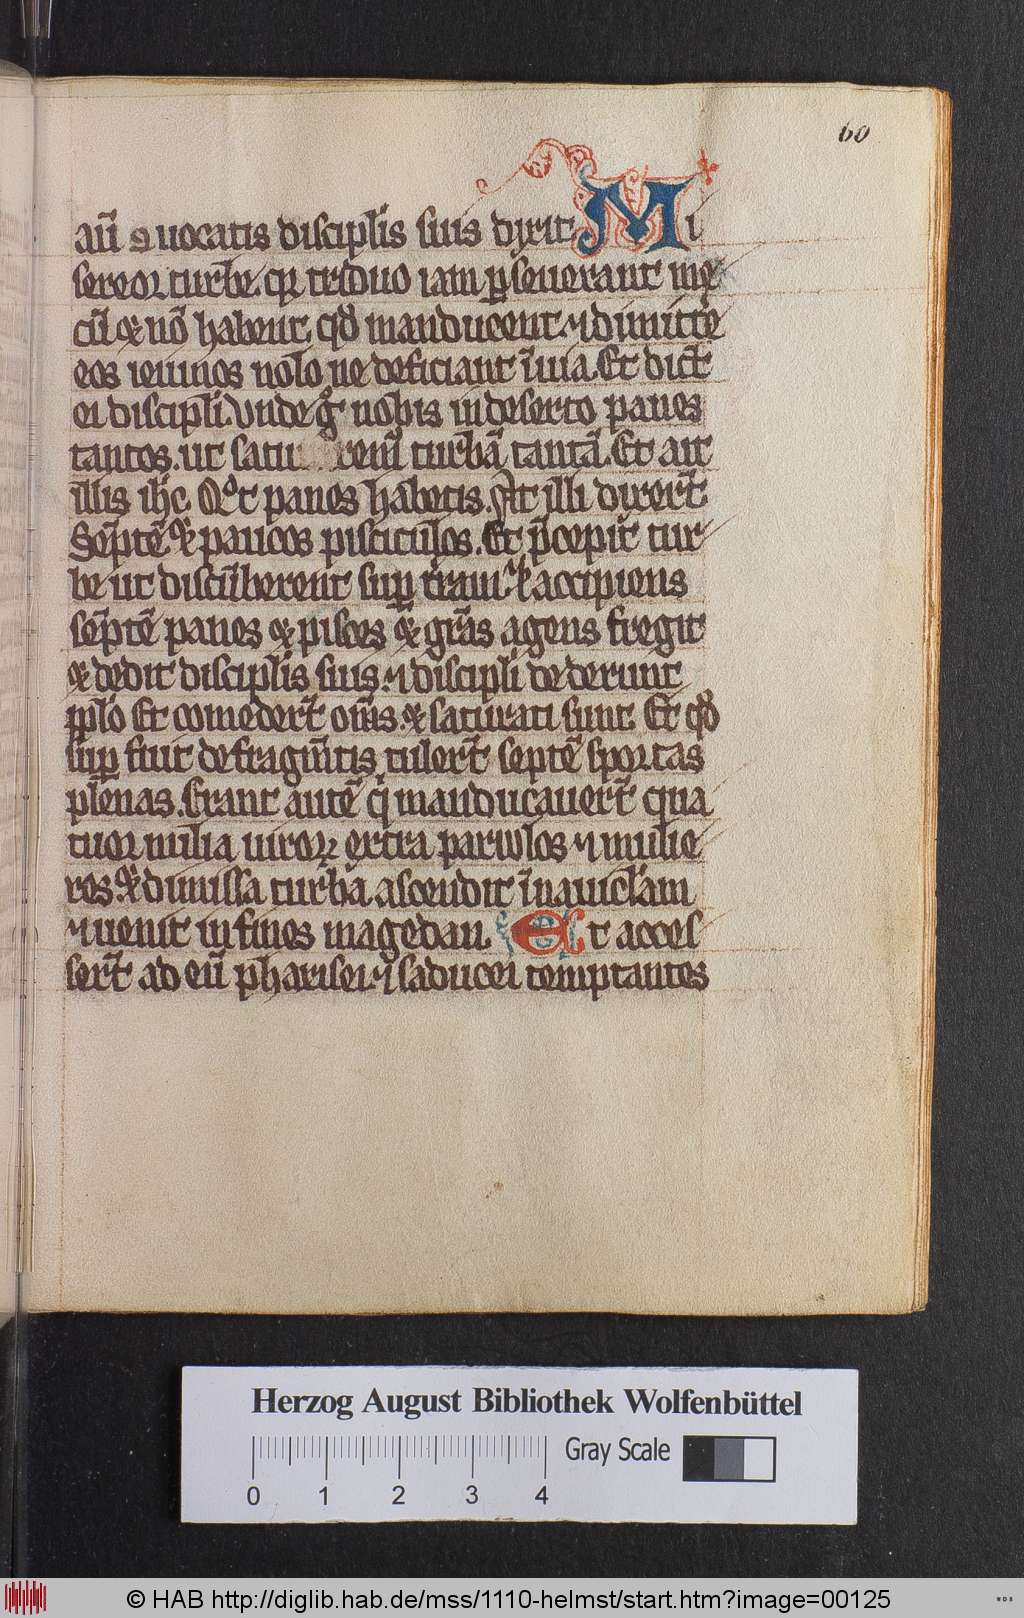 60
aut̄ ↄuocatis discipl̄is suis dixit Mi
sereor turbe. qꝛ triduo iam ꝑseuerant me
cū ⁊ nō habent qd̄ manducent. ⁊ dimitte
eos ieiunos nolo ne deficiant ī uia. Et dicūt
ei discipl̄i. Vnde gͦ nobis in deserto panes
tantos. ut satu remꝰ turbā tantā. Et ait
illis ih̄c. Qͦt panes habetis. At illi dixer̄t
Septē ⁊ paucos pisciculos. Et p̄cepit tur
be ut discūberent suꝑ terram. ⁊ accipiens
septē panes ⁊ pisces ⁊ gr̄as agens fregit
⁊ dedit discipl̄is suis. ⁊ discipl̄i dederunt
ppl̄o Et comeder̄t om̄s. ⁊ saturati sunt. Et qd̄
suꝑ fuit de fragm̄tis tuler̄t septē sportas
plenas. Erant autē qͥ manducauer̄t qua
tuor milia uiroꝝ extra paruulos ⁊ mulie
res. ⁊ dimissa turba ascendit ī nauiclam
⁊ uenit in fines magedan. Et acces
ser̄t ad eū pharisei ⁊ saducei temptantes
Herzog August Bibliothek Wolfenbüttel
0 1 2 3 4 Gray Scale
© HAB http://diglib.hab.de/mss/1110-helmst/start.htm?image=00125